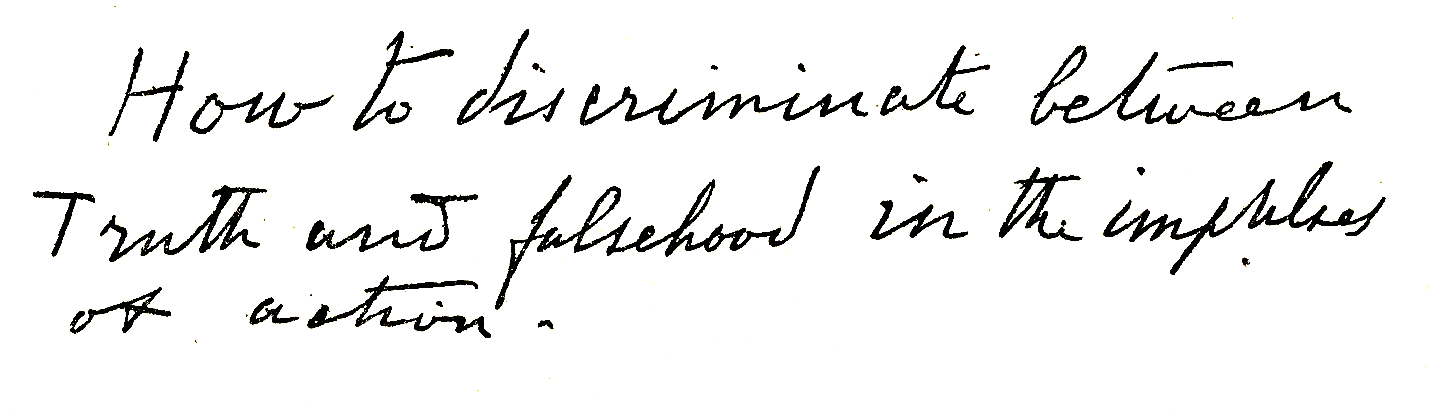 How to discriminate between
Truth and falsehood in the impulses
of action.